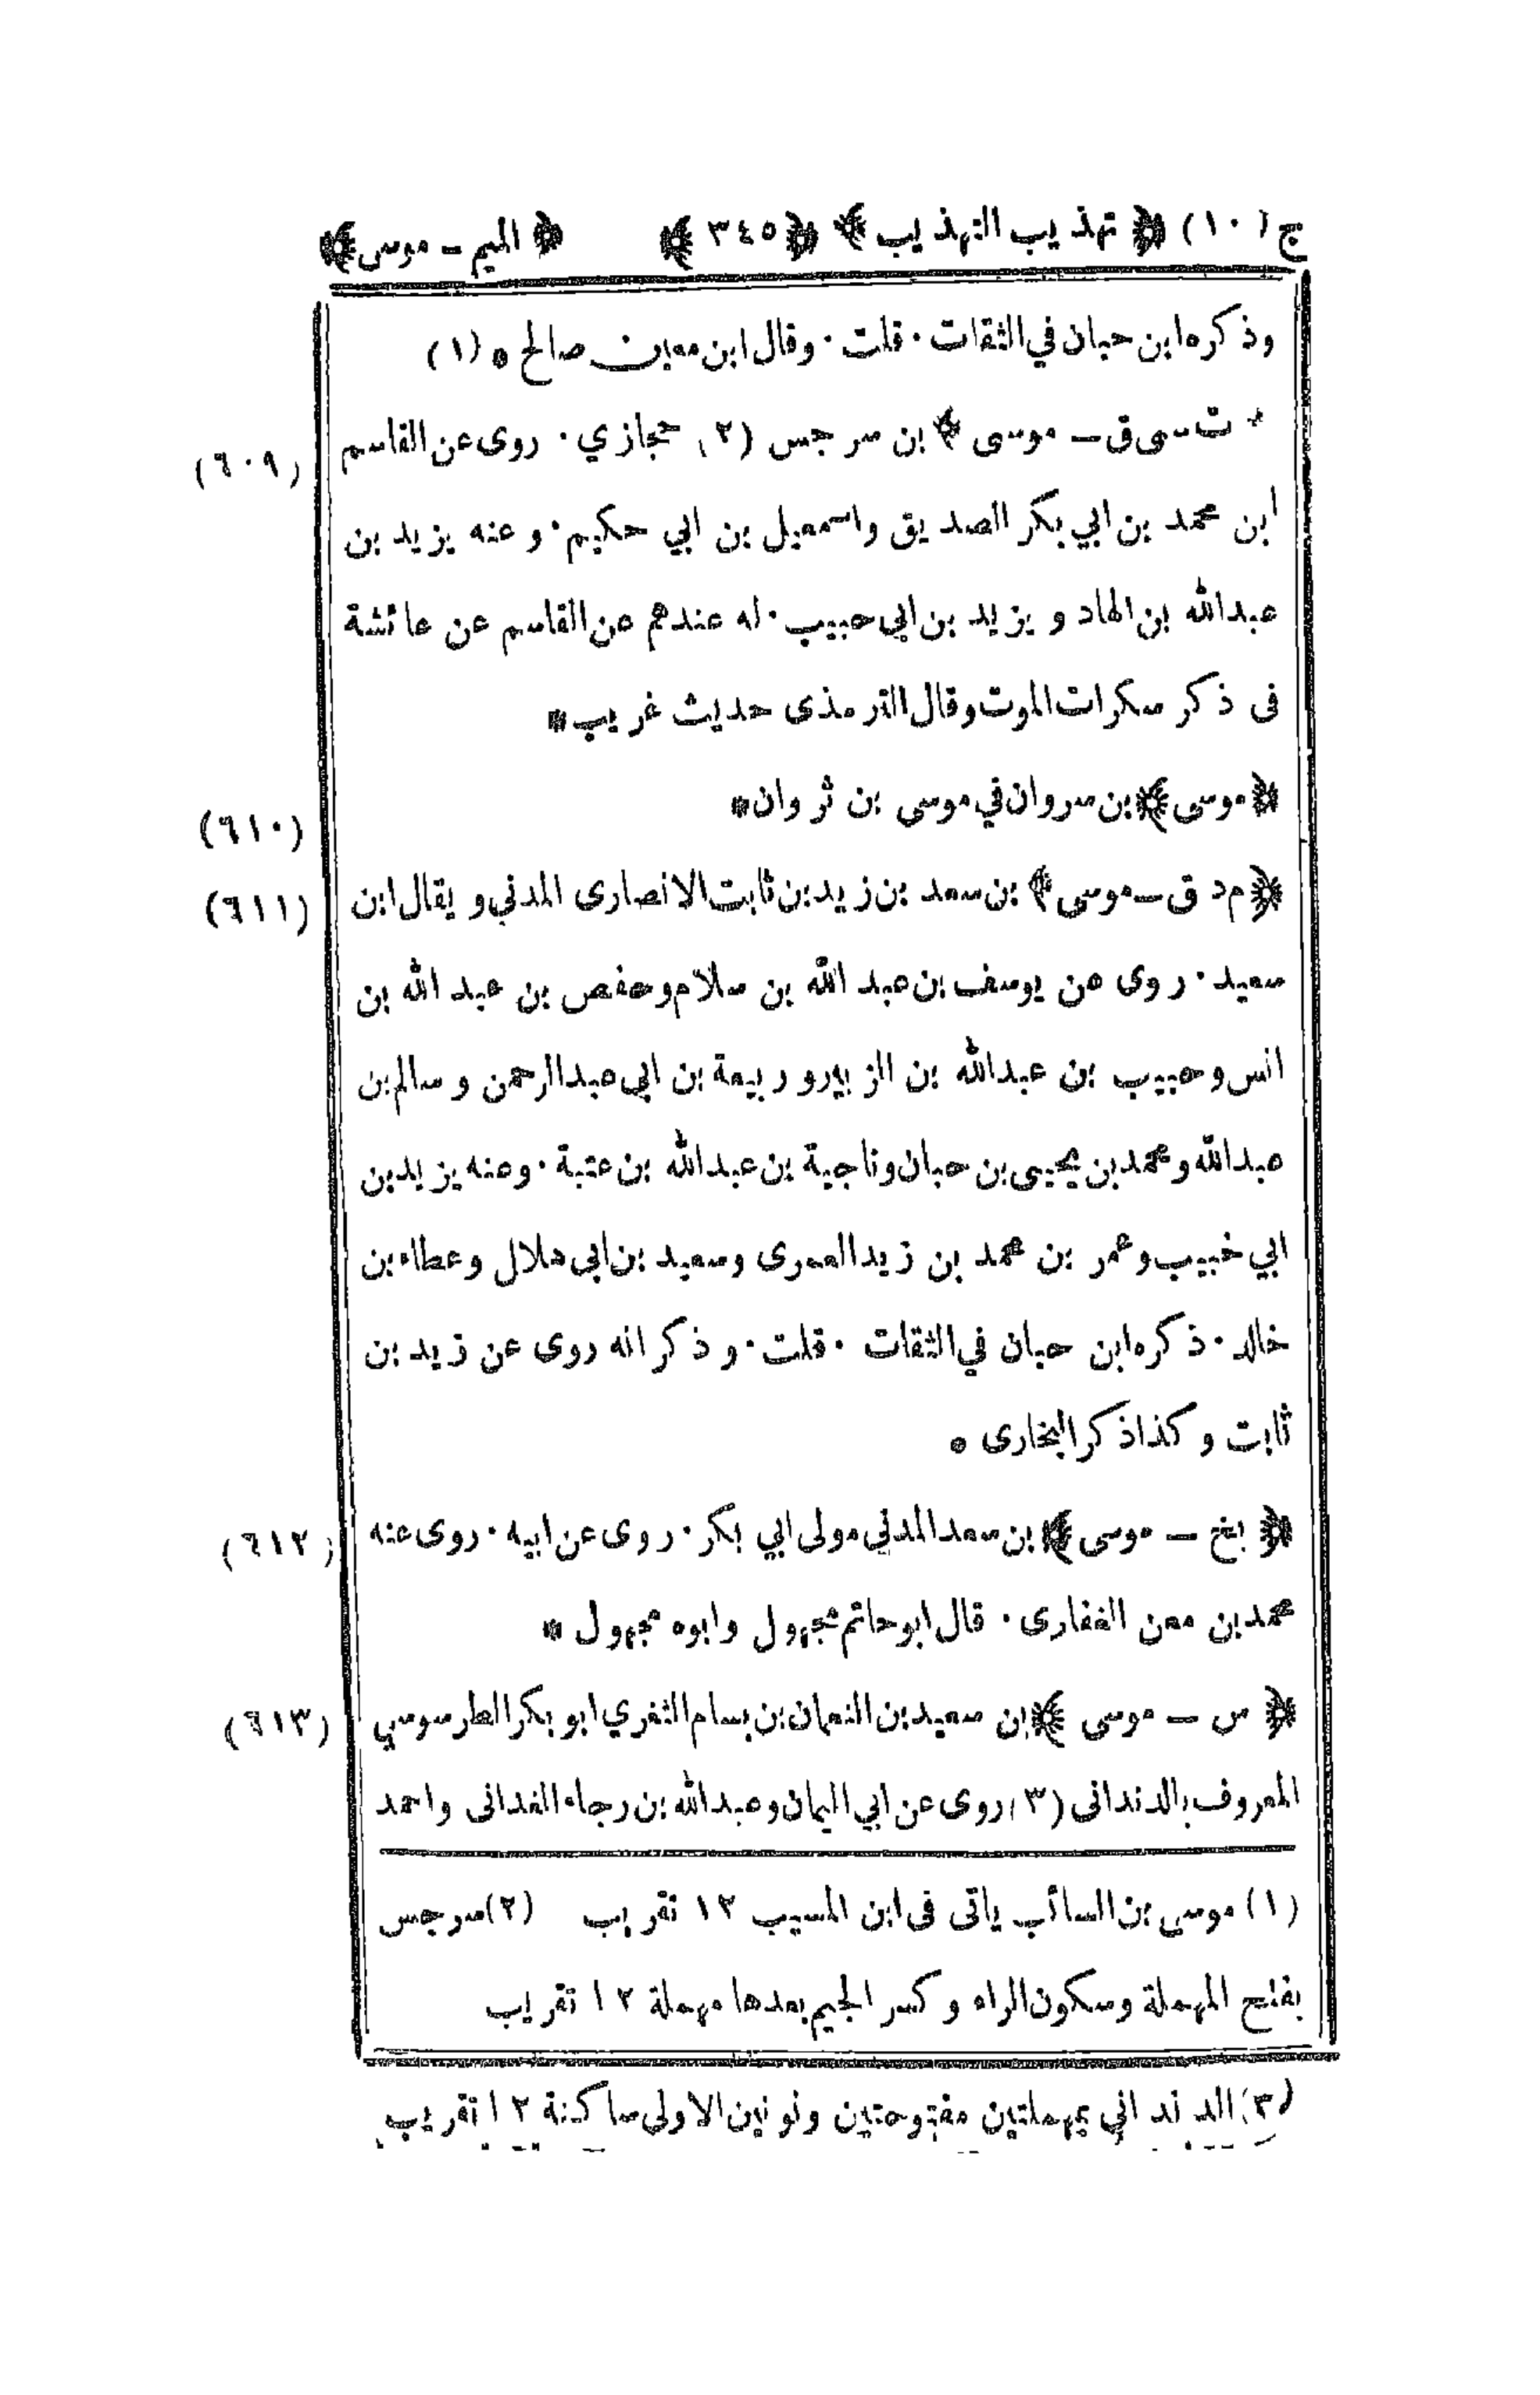 ج (١٠) ﴿ تهذيب التهذيب ﴾ ﴿ ٣٤٥ ﴾ ﴿ الميم ـ موسى ﴾
وذكره ابن حبان في الثقات ٠ قلت ٠ وقال ابن معين صالح * (١)
* ت سى ق ـ موسى ﴾ بن سرجس (٢) حجازي ٠ روى عن القاسم (٦٠٩)
ابن محمد بن ابي بكر الصديق واسمعيل بن ابي حكيم ٠ وعنه يزيد بن
عبدالله بن الهاد ويزيد بن ابى حبيب ٠ له عندهم عن القاسم عن عائشة
فى ذكر سكرات الموت وقال الترمذى حديث غريب *
﴿ موسى ﴾ بن سروان في موسى بن ثروان * (٦١٠)
﴿ م د ق ـ موسى ﴾ بن سعد بن زيد بن ثابت الانصارى المدني ويقال ابن (٦١١)
سعيد ٠ روى عن يوسف بن عبد الله بن سلام وحفص بن عبد الله بن
انس وحبيب بن عبدالله بن الزبير وربيعة بن ابى عبدالرحمن وسالم بن
عبدالله ومحمد بن يحيى بن حبان وناجية بن عبدالله بن عتبة ٠ وعنه يزيد بن
ابي خبيب وعمر بن محمد بن زيد العمرى وسعيد بن ابى هلال وعطاء بن
خالد ٠ ذكره ابن حبان في الثقات ٠ قلت ٠ وذكر انه روى عن زيد بن
ثابت وكذا ذكر البخارى *
﴿ بخ ـ موسى ﴾ بن سعد المدني مولى ابي بكر ٠ روى عن ابيه ٠ روى عنه (٦١٢)
محمد بن معن الغفارى ٠ قال ابو حاتم مجهول وابوه مجهول *
﴿ س ـ موسى ﴾ بن سعيد بن النعمان بن بسام الثغري ابو بكر الطرسوسي (٦١٣)
المعروف بالدندانى (٣) روى عن ابي اليمان وعبدالله بن رجاء الغدانى واحمد
(١) موسى بن السائب ياتى فى ابن المسيب ١٢ تقريب (٢) سرجس
بفتح المهملة وسكون الراء وكسر الجيم بعدها مهملة ١٢ تقريب
(٣) الدنداني بمهملتين مفتوحتين ونونين الاولى ساكنة ١٢ تقريب